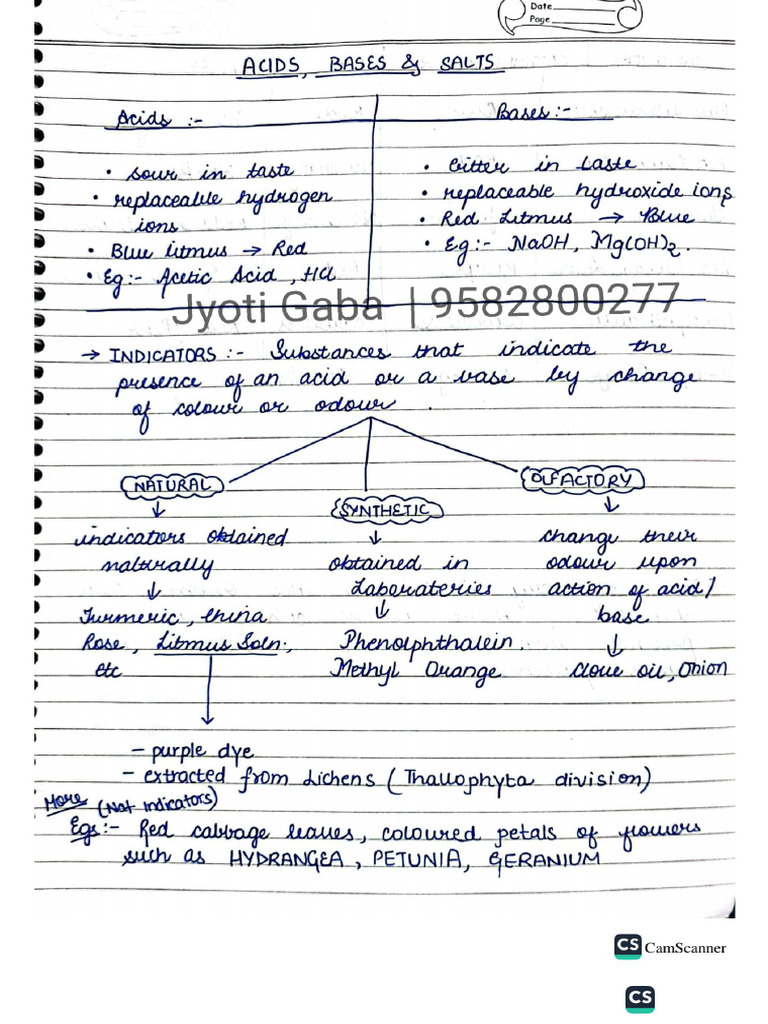 Date
Page
ACIDS, BASES & SALTS
Acids :-
• sour in taste
• replaceable hydrogen
ions
• Blue litmus → Red
• Eg:- Acetic Acid, HCl
Bases :-
• bitter in taste
• replaceable hydroxide ions
• Red Litmus → Blue
• Eg:- NaOH, Mg(OH)2.
Jyoti Gaba | 9582800277
→ INDICATORS :- Substances that indicate the
presence of an acid or a base by change
of colour or odour.
NATURAL
↓
indicators obtained
naturally
↓
Turmeric, China
Rose, Litmus Soln.,
etc
SYNTHETIC
↓
obtained in
Laborateries
↓
Phenolphthalein,
Methyl Orange
OLFACTORY
↓
change their
odour upon
action of acid/
base
↓
Clove oil, Onion
- purple dye
- extracted from Lichens (Thallophyta division)
More (Nat indicators)
Egs:- Red cabbage leaves, coloured petals of flowers
such as HYDRANGEA, PETUNIA, GERANIUM
CS CamScanner
CS